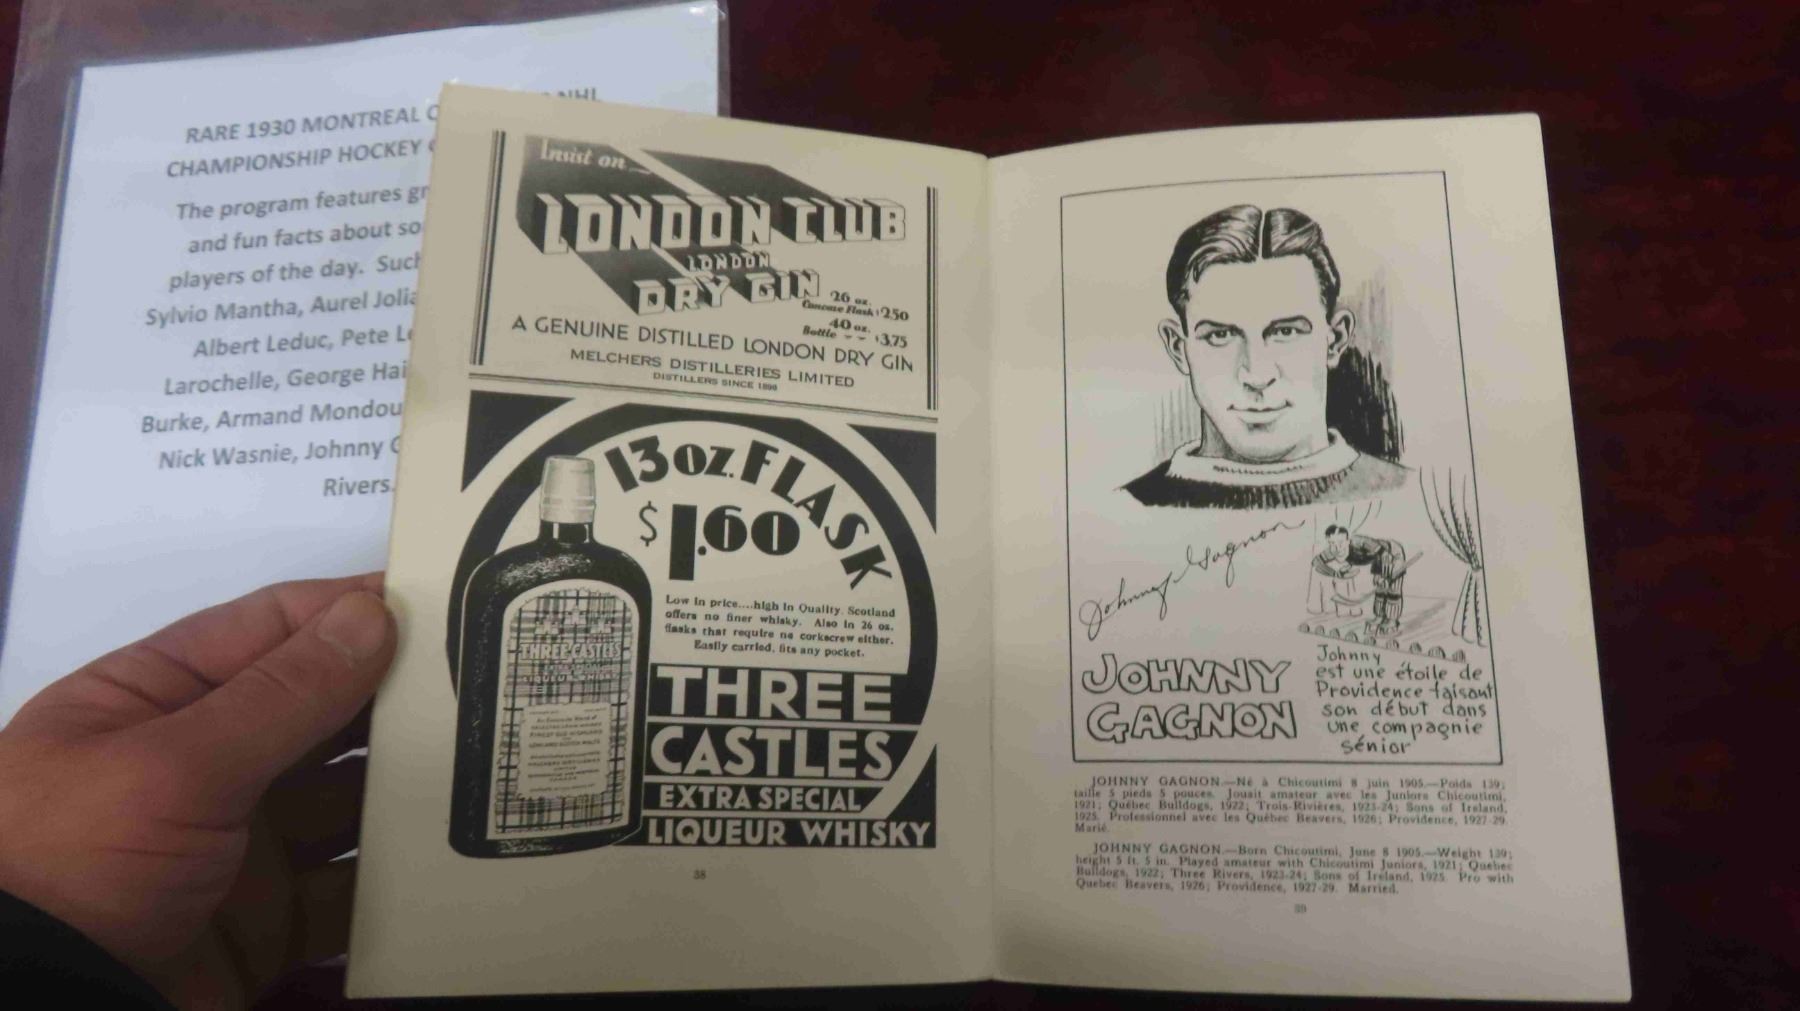 RARE 1930 MONTREAL
NHL
CHAMPIONSHIP HOCKEY
The program features
and fun facts about
players of the day. Such
Sylvio Mantha, Aurel
Albert Leduc, Pete
Larochelle, George
Burke, Armand
Nick Wasnie, Johnny
Rivers.
Insist on
LONDON CLUB
LONDON
DRY GIN
26 oz.
Concave Flask $2.50
40 oz.
Bottle - - $3.75
A GENUINE DISTILLED LONDON DRY GIN
MELCHERS DISTILLERIES LIMITED
DISTILLERS SINCE 1898
13 OZ. FLASK
$1.60
Low in price....high in Quality. Scotland
offers no finer whisky. Also in 26 oz.
flasks that require no corkscrew either.
Easily carried, fits any pocket.
THREE CASTLES
LIQUEUR WHISKY
THREE
CASTLES
EXTRA SPECIAL
LIQUEUR WHISKY
38
Johnny Gagnon
JOHNNY
GAGNON
Johnny
est une étoile de
Providence faisant
son début dans
une compagnie
sénior
JOHNNY GAGNON.—Né à Chicoutimi 8 juin 1905.—Poids 139;
taille 5 pieds 5 pouces. Jouait amateur avec les Juniors Chicoutimi,
1921; Québec Bulldogs, 1922; Trois-Rivières, 1923-24; Sons of Ireland,
1925. Professionnel avec les Québec Beavers, 1926; Providence, 1927-29.
Marié.
JOHNNY GAGNON.—Born Chicoutimi, June 8 1905.—Weight 139;
height 5 ft. 5 in. Played amateur with Chicoutimi Juniors, 1921; Quebec
Bulldogs, 1922; Three Rivers, 1923-24; Sons of Ireland, 1925. Pro with
Quebec Beavers, 1926; Providence, 1927-29. Married.
39